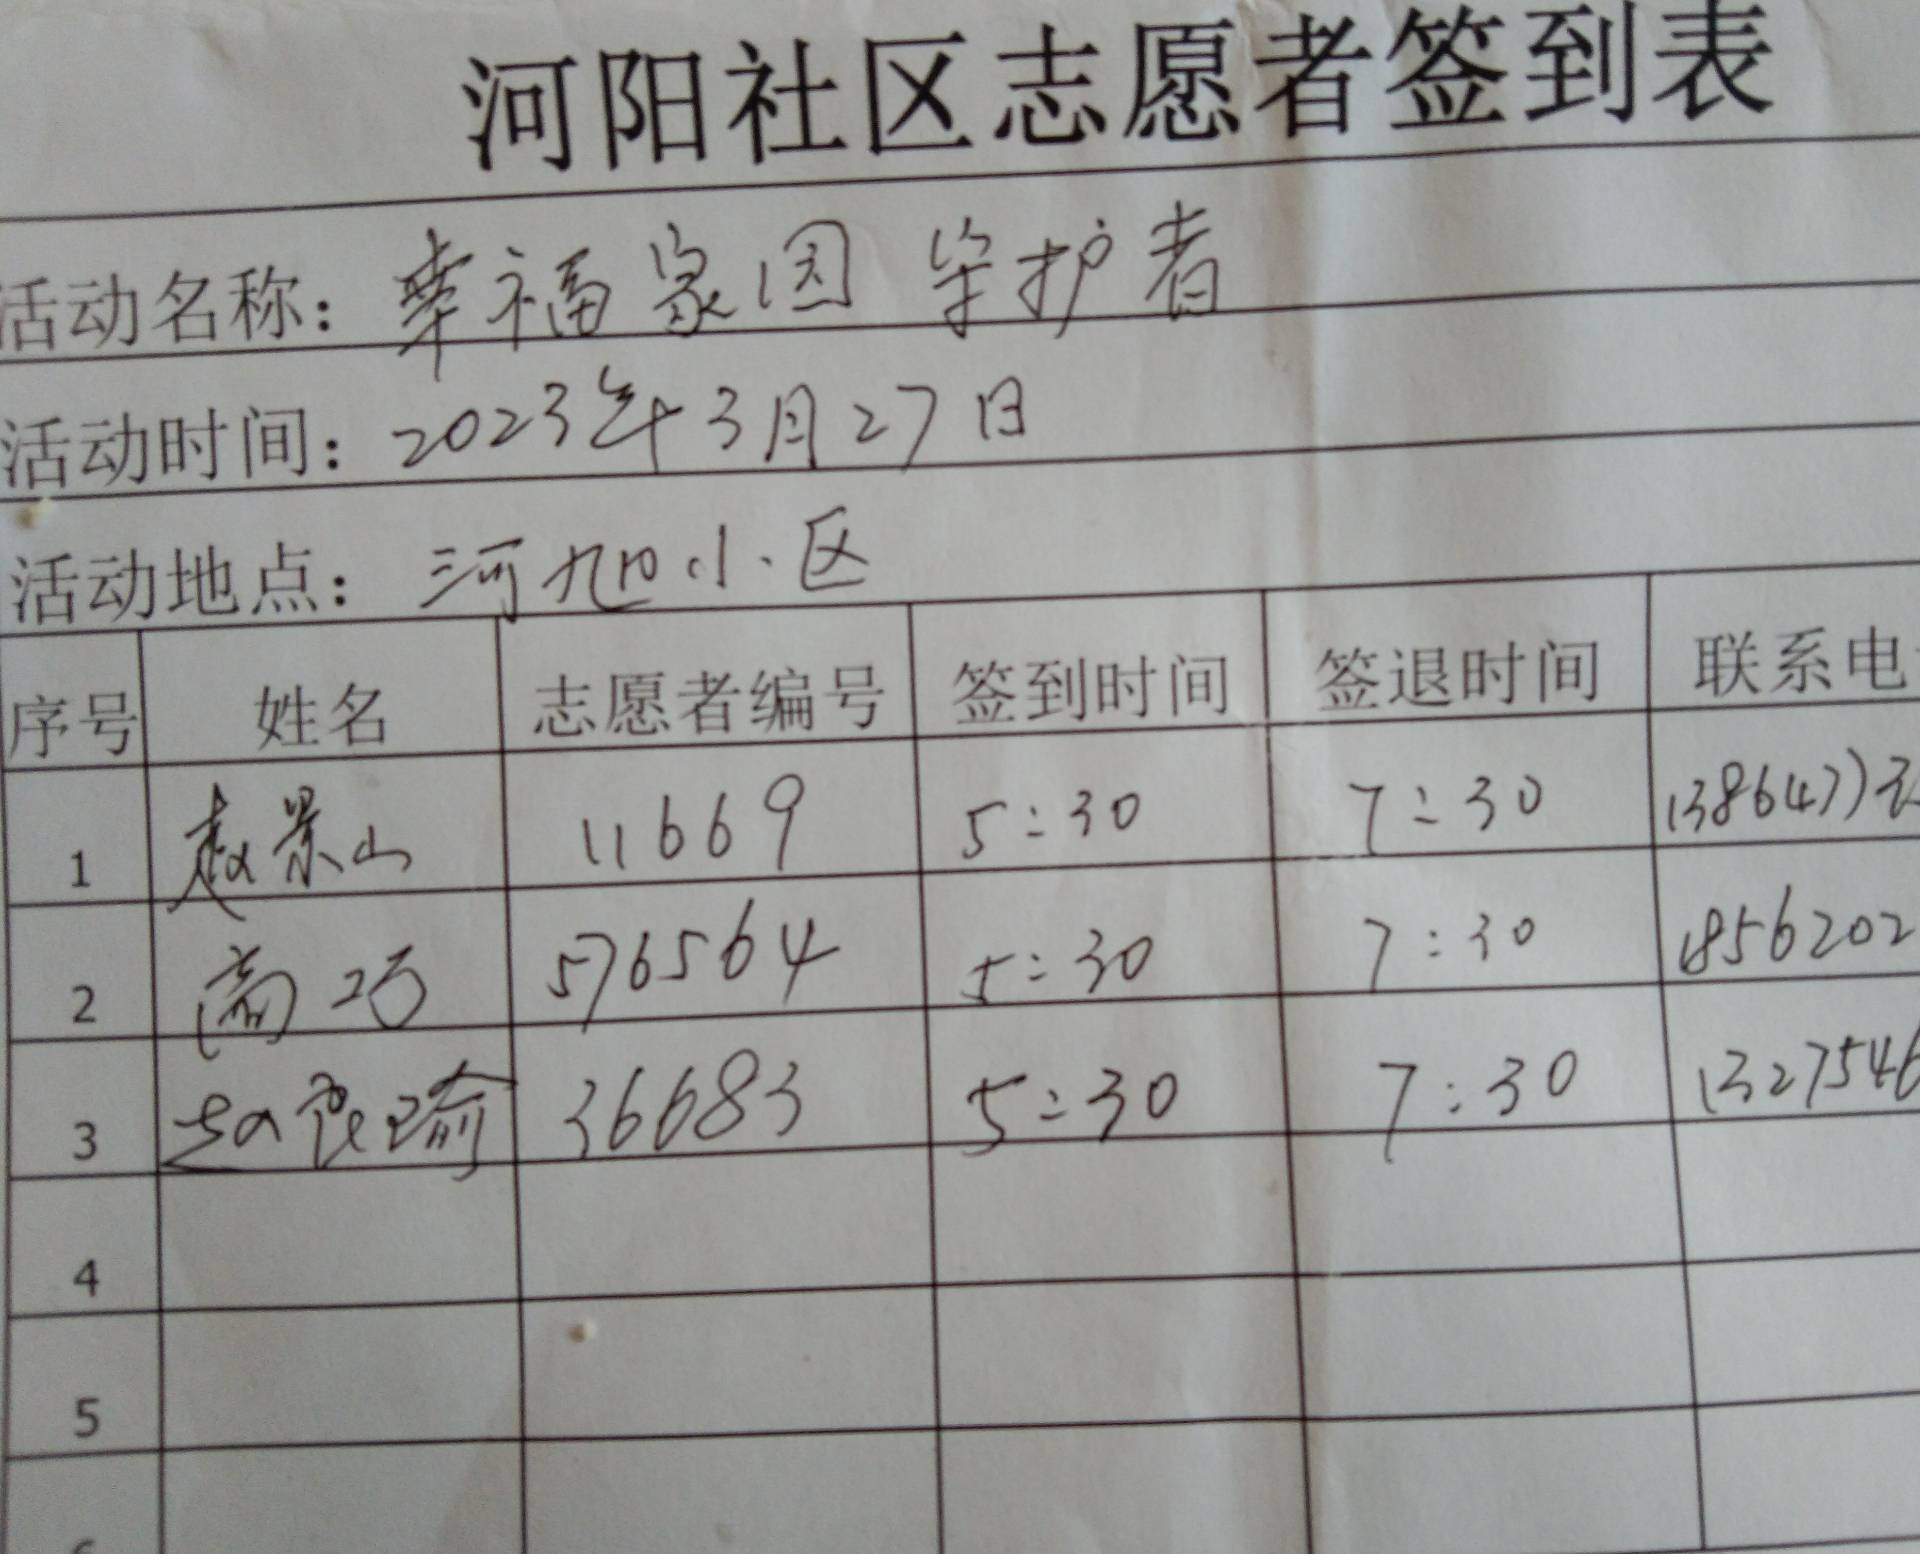 河阳社区志愿者签到表
活动名称：幸福家园守护者
活动时间：2023年3月27日
活动地点：河旭小区
序号 姓名 志愿者编号 签到时间 签退时间 联系电
1 赵景山 11669 5:30 7:30 1386477
2 高巧 576564 5:30 7:30 1856202
3 赵良瑜 36683 5:30 7:30 1327546
4
5